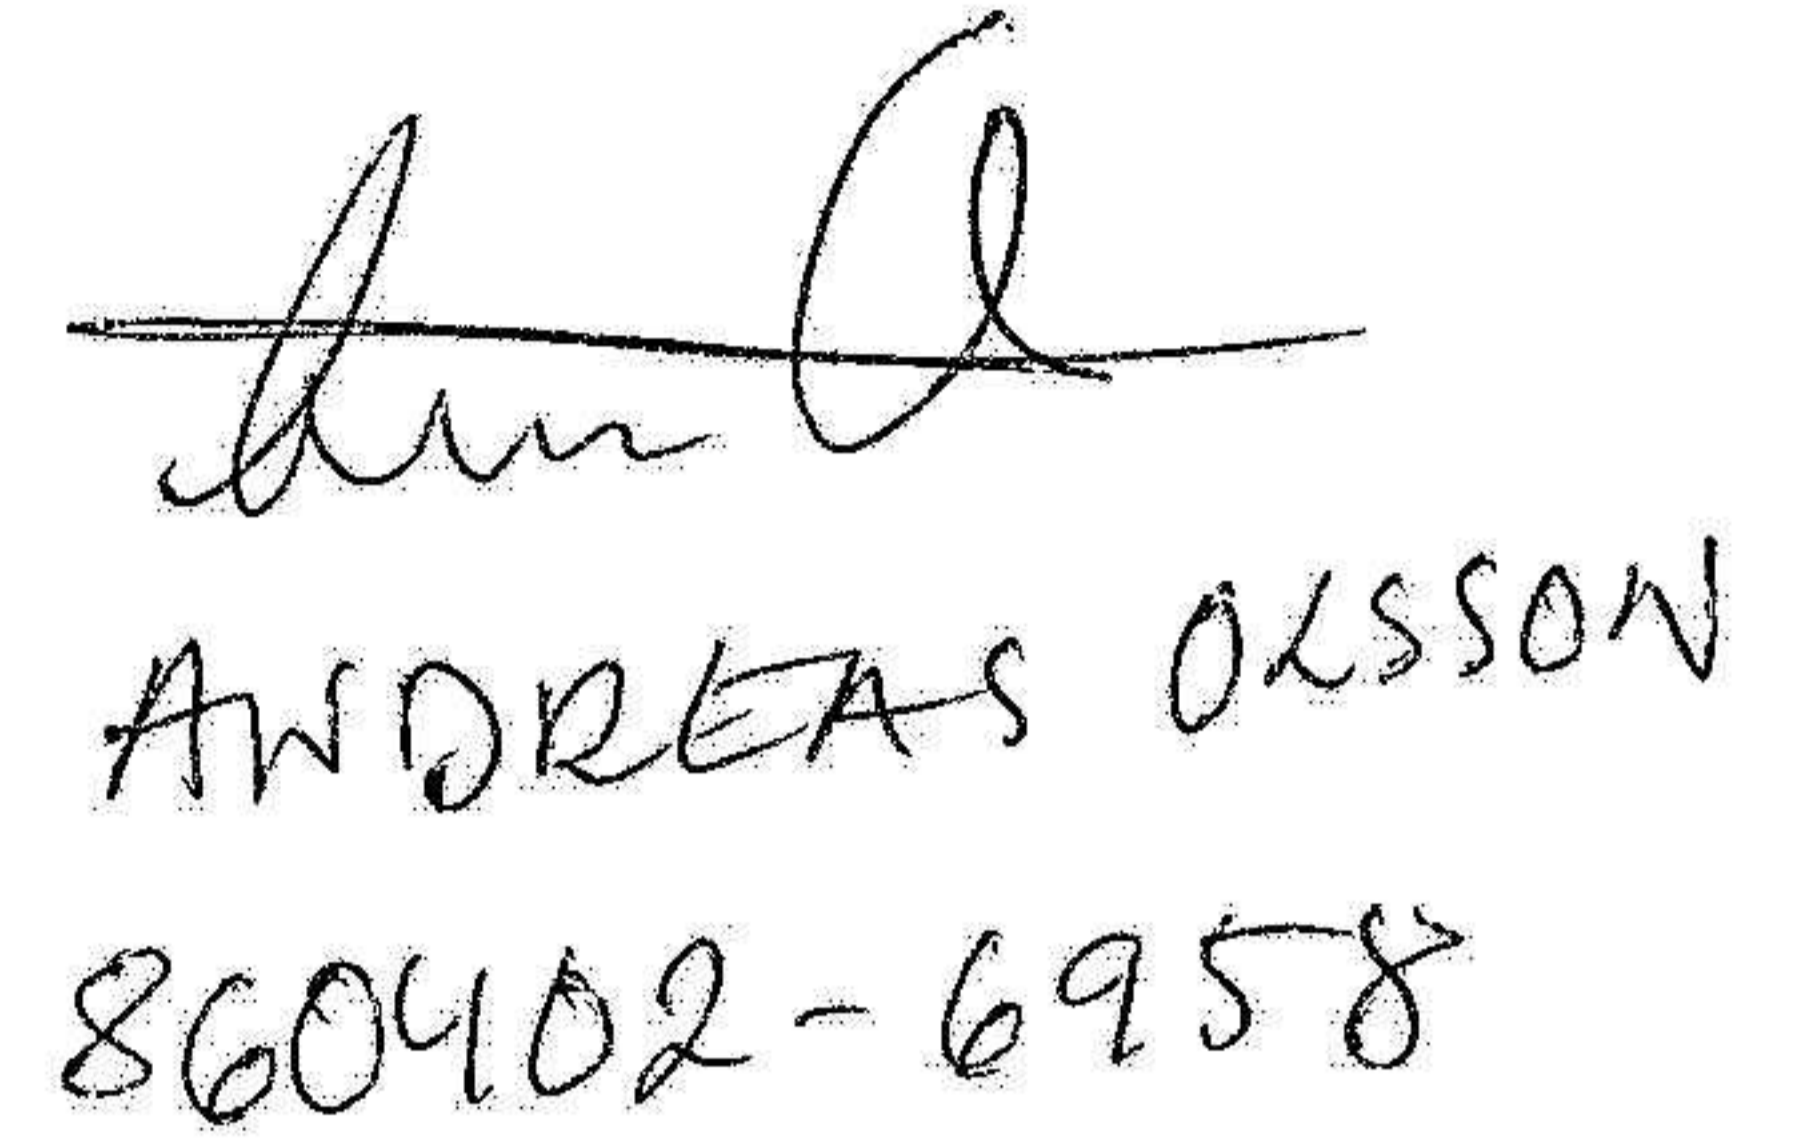 ANDREAS OLSSON
860402-6958